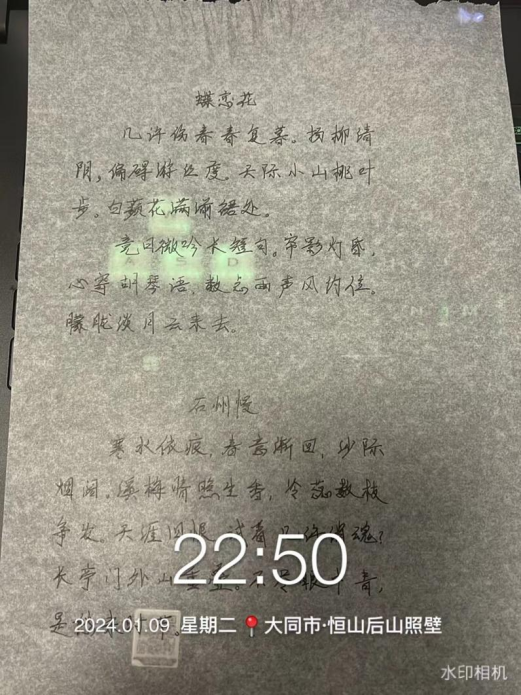 蝶恋花
几许伤春春复暮。杨柳清
阴，偏碍游丝度。天际小山桃叶
步。白蘋花满湔裙处。
竟日微吟长短句。帘影灯昏，
心寄胡琴语。数点雨声风约住。
朦胧淡月云来去。
石州慢
寒水依痕，春意渐回，沙际
烟阔。溪梅晴照生香，冷蕊数枝
争发。天涯旧恨，试看几许消魂？
长亭门外山重叠。不尽眼中青，
是
22:50
2024.01.09 星期二 大同市·恒山后山照壁
水印相机